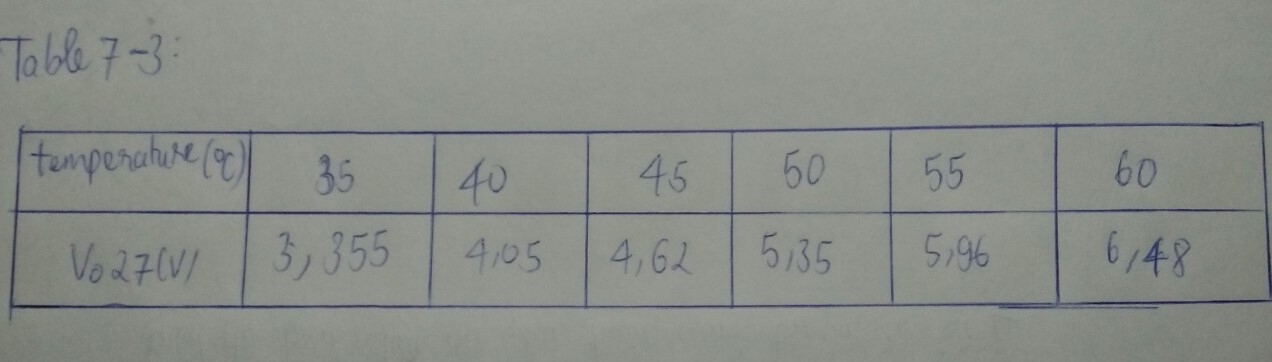 Table 7-3:
temperature (°C) 35 40 45 50 55 60
Vo27(V) 3,355 4,05 4,62 5,35 5,96 6,48